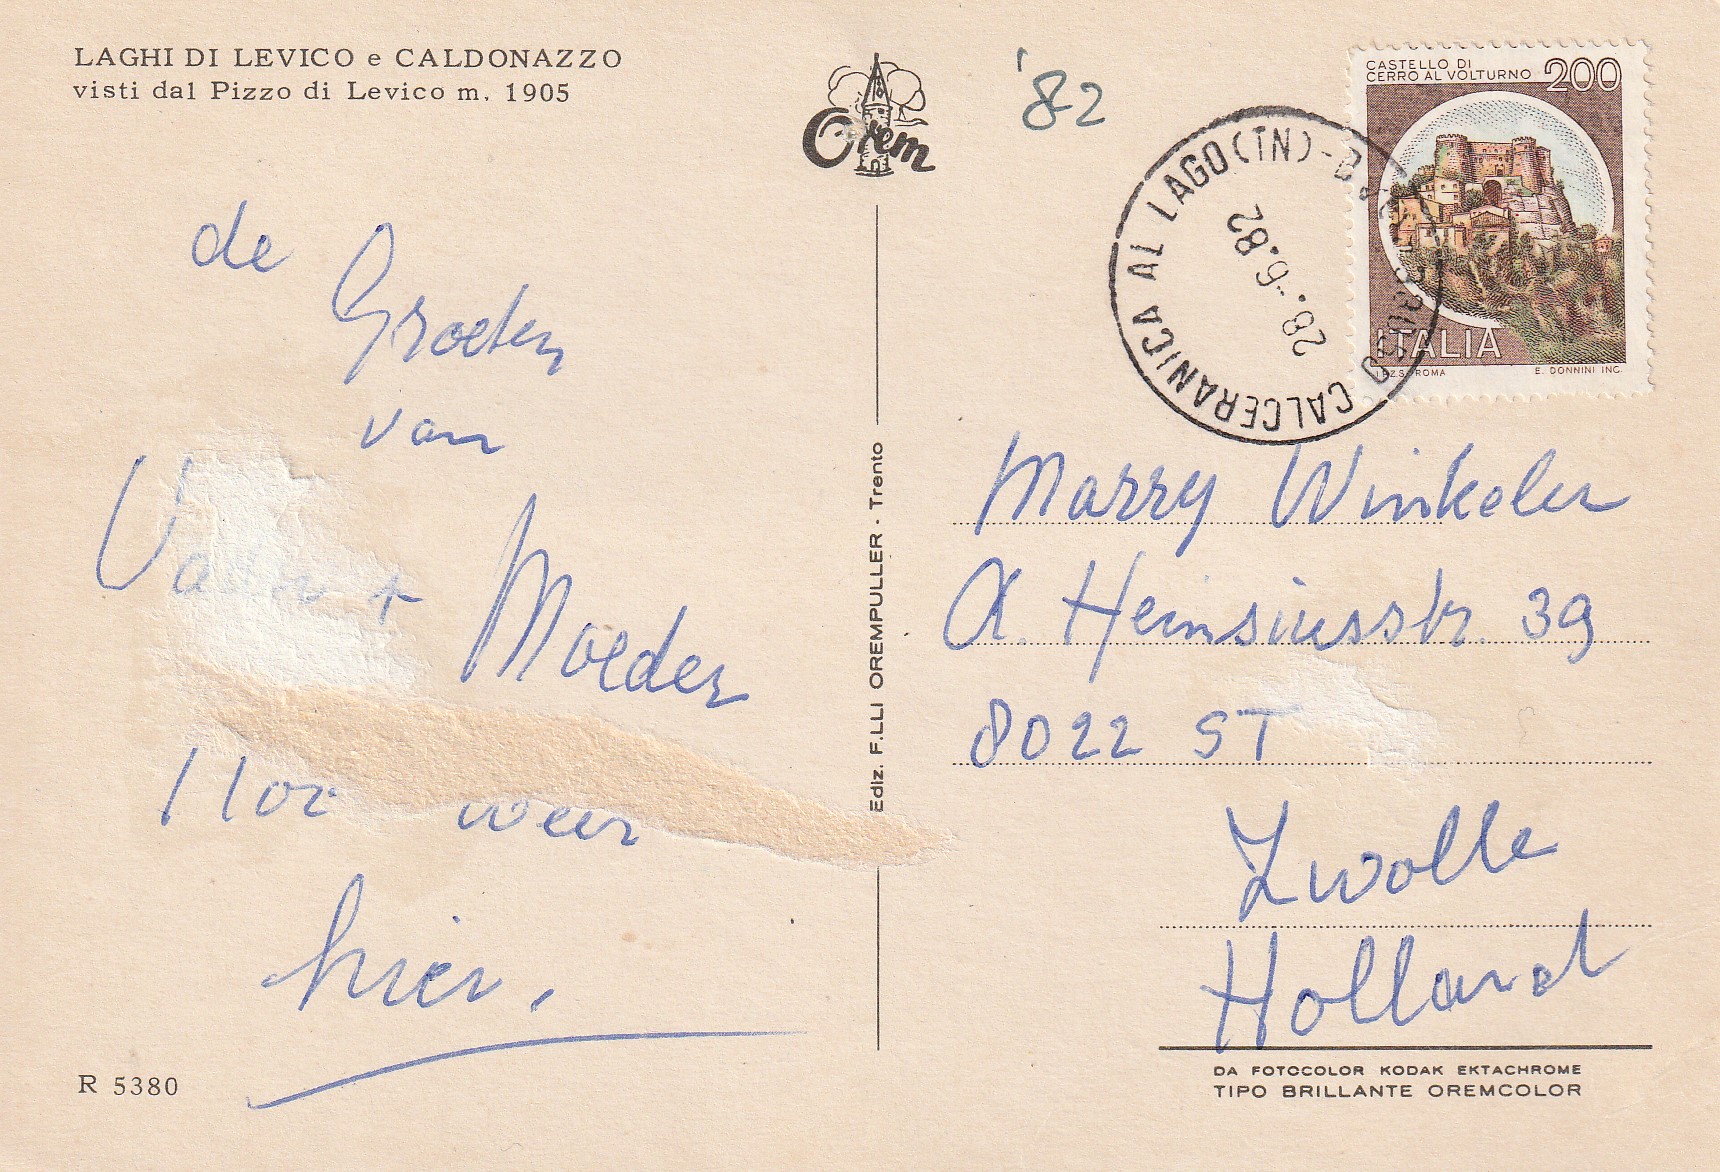 LAGHI DI LEVICO e CALDONAZZO
visti dal Pizzo di Levico m. 1905
Orem
'82
CASTELLO DI
CERRO AL VOLTURNO 200
ITALIA
I.P.Z.S. ROMA E. DONNINI INC.
CALCERANICA AL LAGO (TN)
28.-6.82
de
Groeten
van
Vader +
Moeder
weer
hier.
Ediz. F.LLI OREMPULLER - Trento
Marry Winkeler
A. Heinsiusstr. 39
8022 ST
Zwolle
Holland
R 5380
DA FOTOCOLOR KODAK EKTACHROME
TIPO BRILLANTE OREMCOLOR